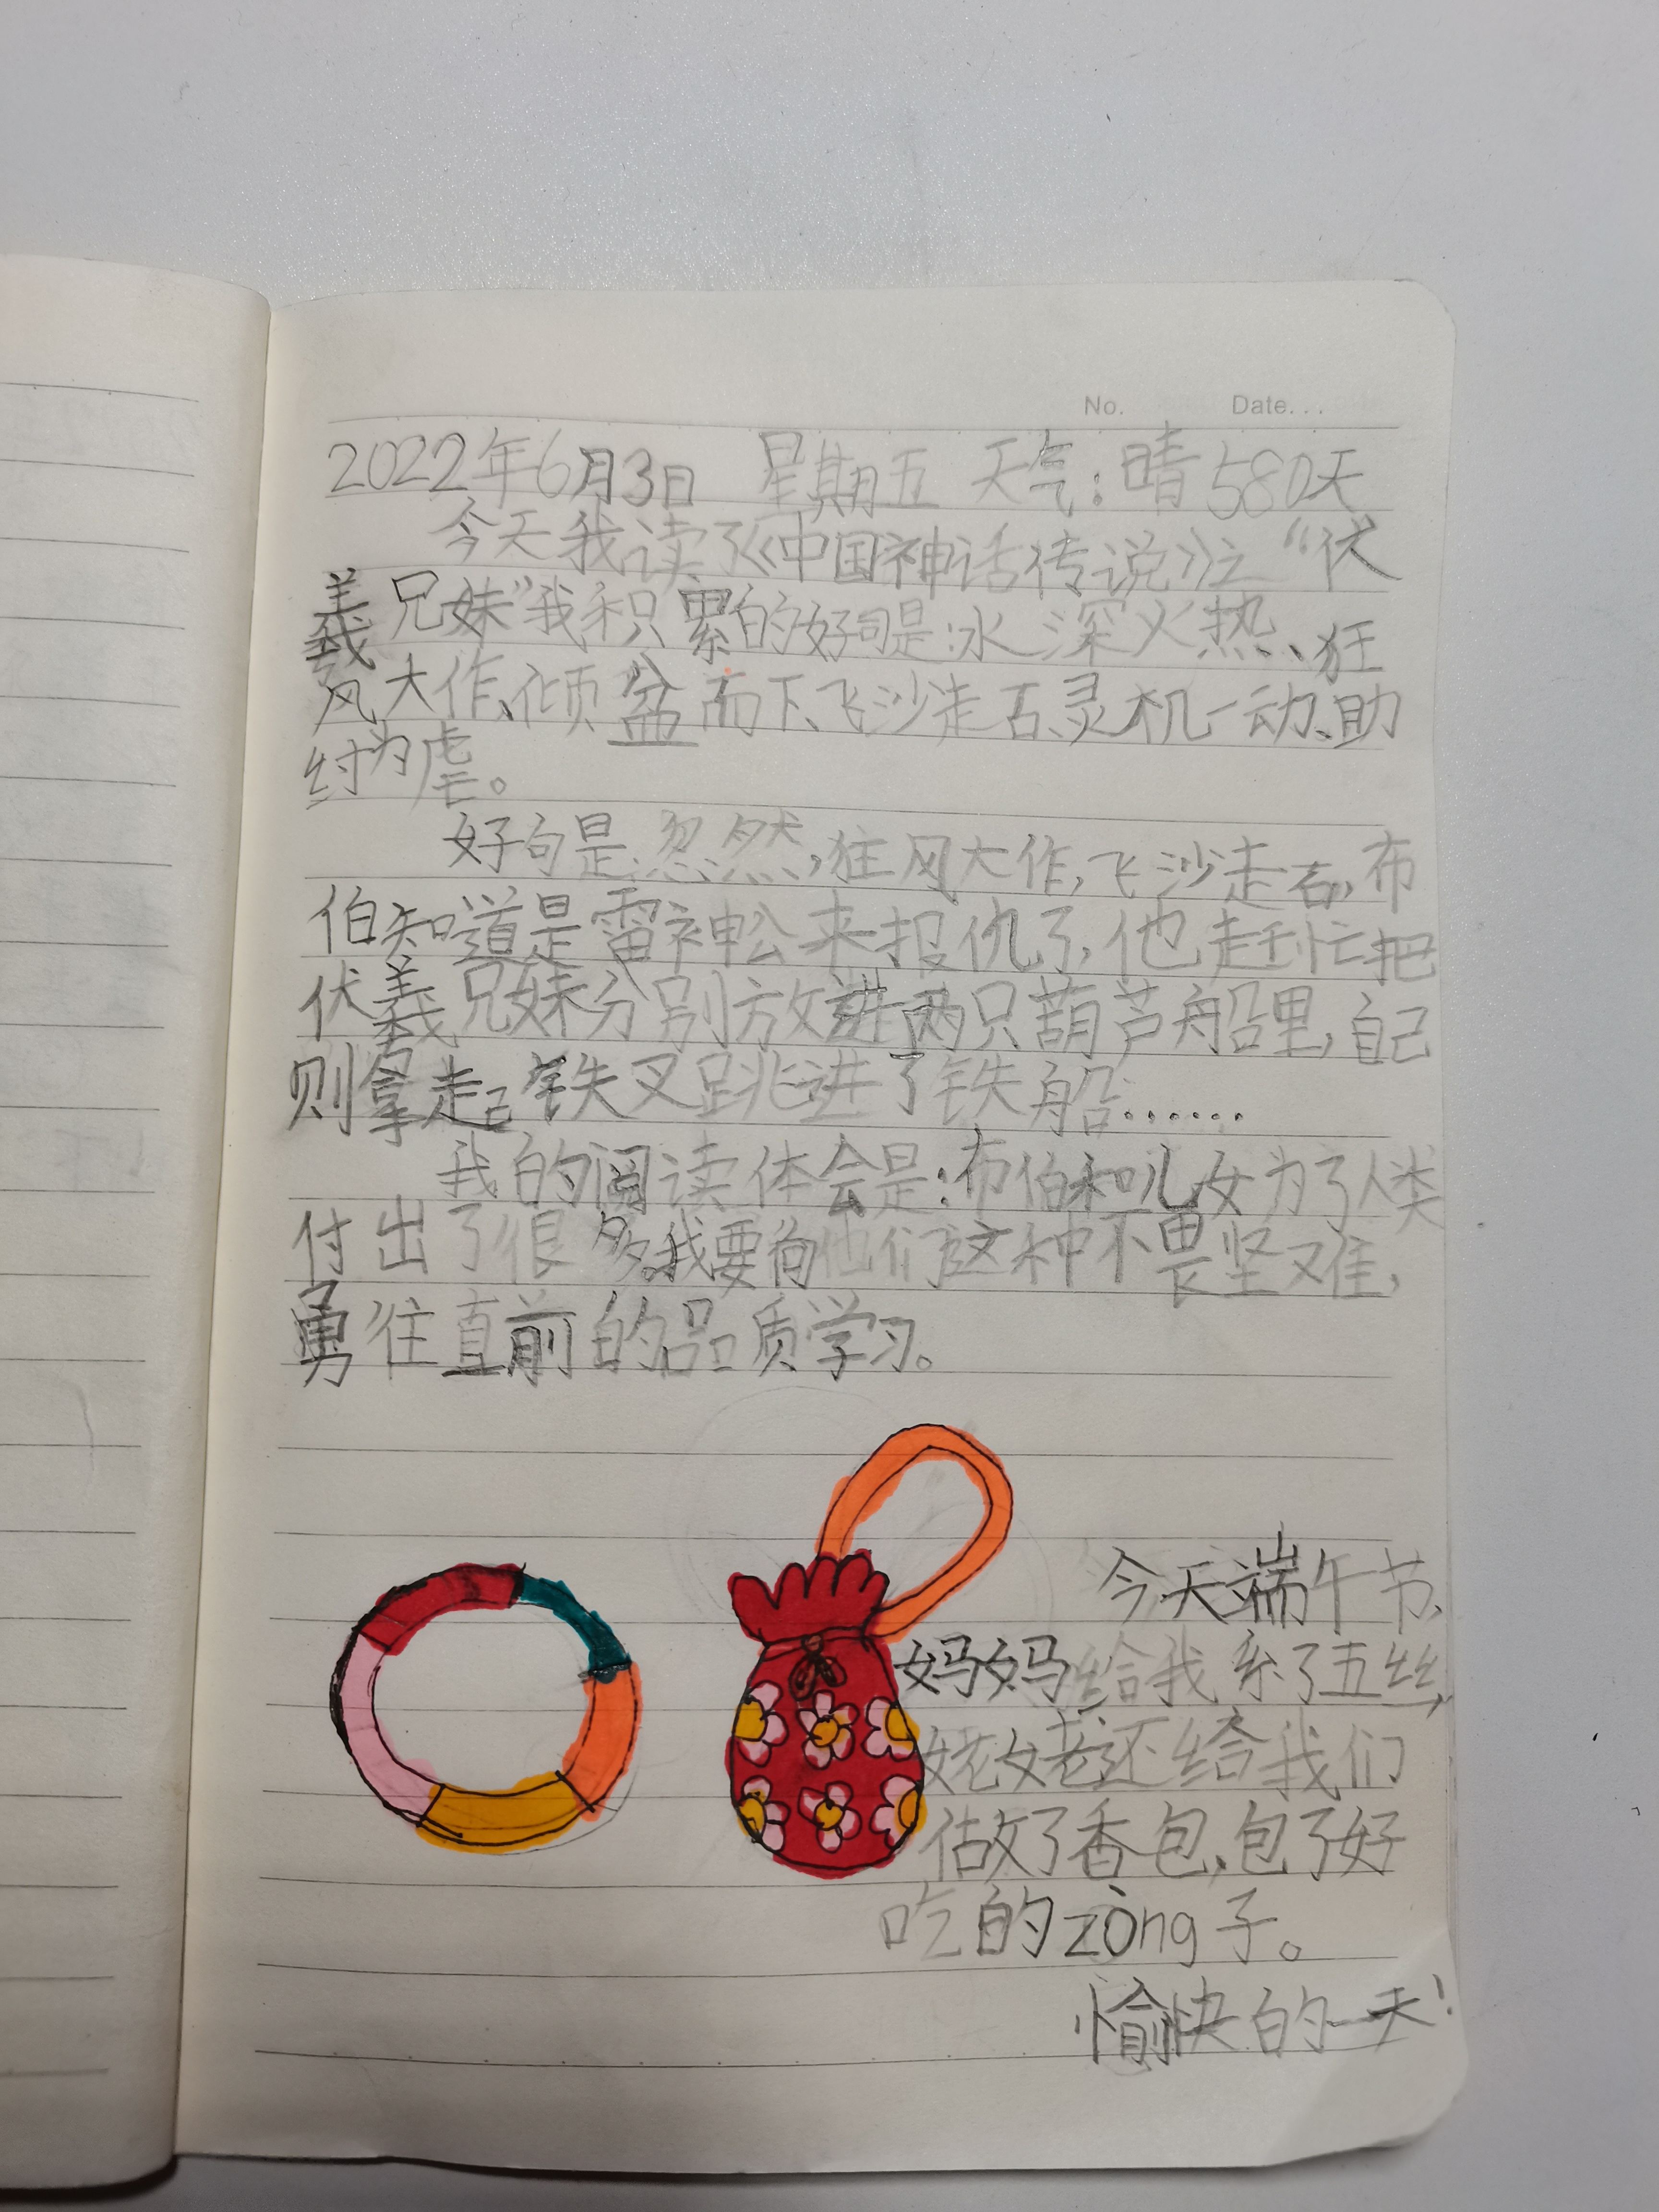 No. Date...
2022年6月3日 星期五 天气:晴 580天
今天我读了《中国神话传说》之“伏
羲兄妹”我积累的好词是:水深火热、狂
风大作、倾盆而下、飞沙走石、灵机一动、助
纣为虐。
好句是:忽然,狂风大作,飞沙走石,布
伯知道是雷神公来报仇了,他赶忙把
伏羲兄妹分别放进两只葫芦船里,自己
则拿起铁叉跳进了铁船......
我的阅读体会是:布伯和儿女为了人类
付出了很多。我要向他们这种不畏坚难,
勇往直前的品质学习。
今天端午节,
妈妈给我系了五丝,
姥姥还给我们
做了香包,包了好
吃的zòng子。
愉快的一天!